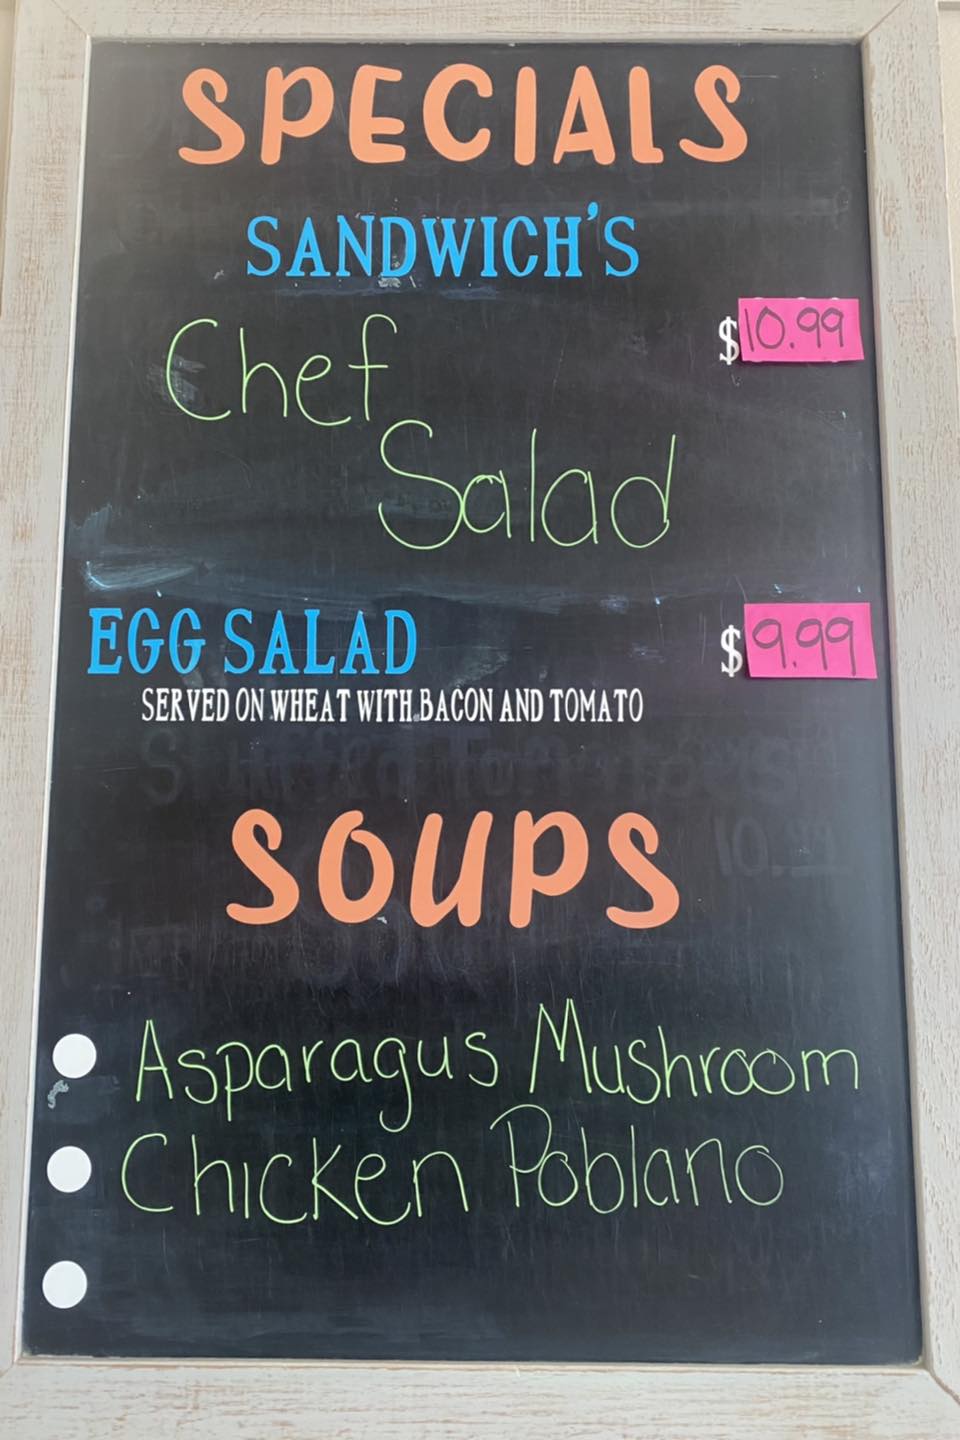 SPECIALS
SANDWICH'S
Chef $10.99
Salad
EGG SALAD $9.99
SERVED ON WHEAT WITH BACON AND TOMATO
SOUPS
Asparagus Mushroom
Chicken Poblano